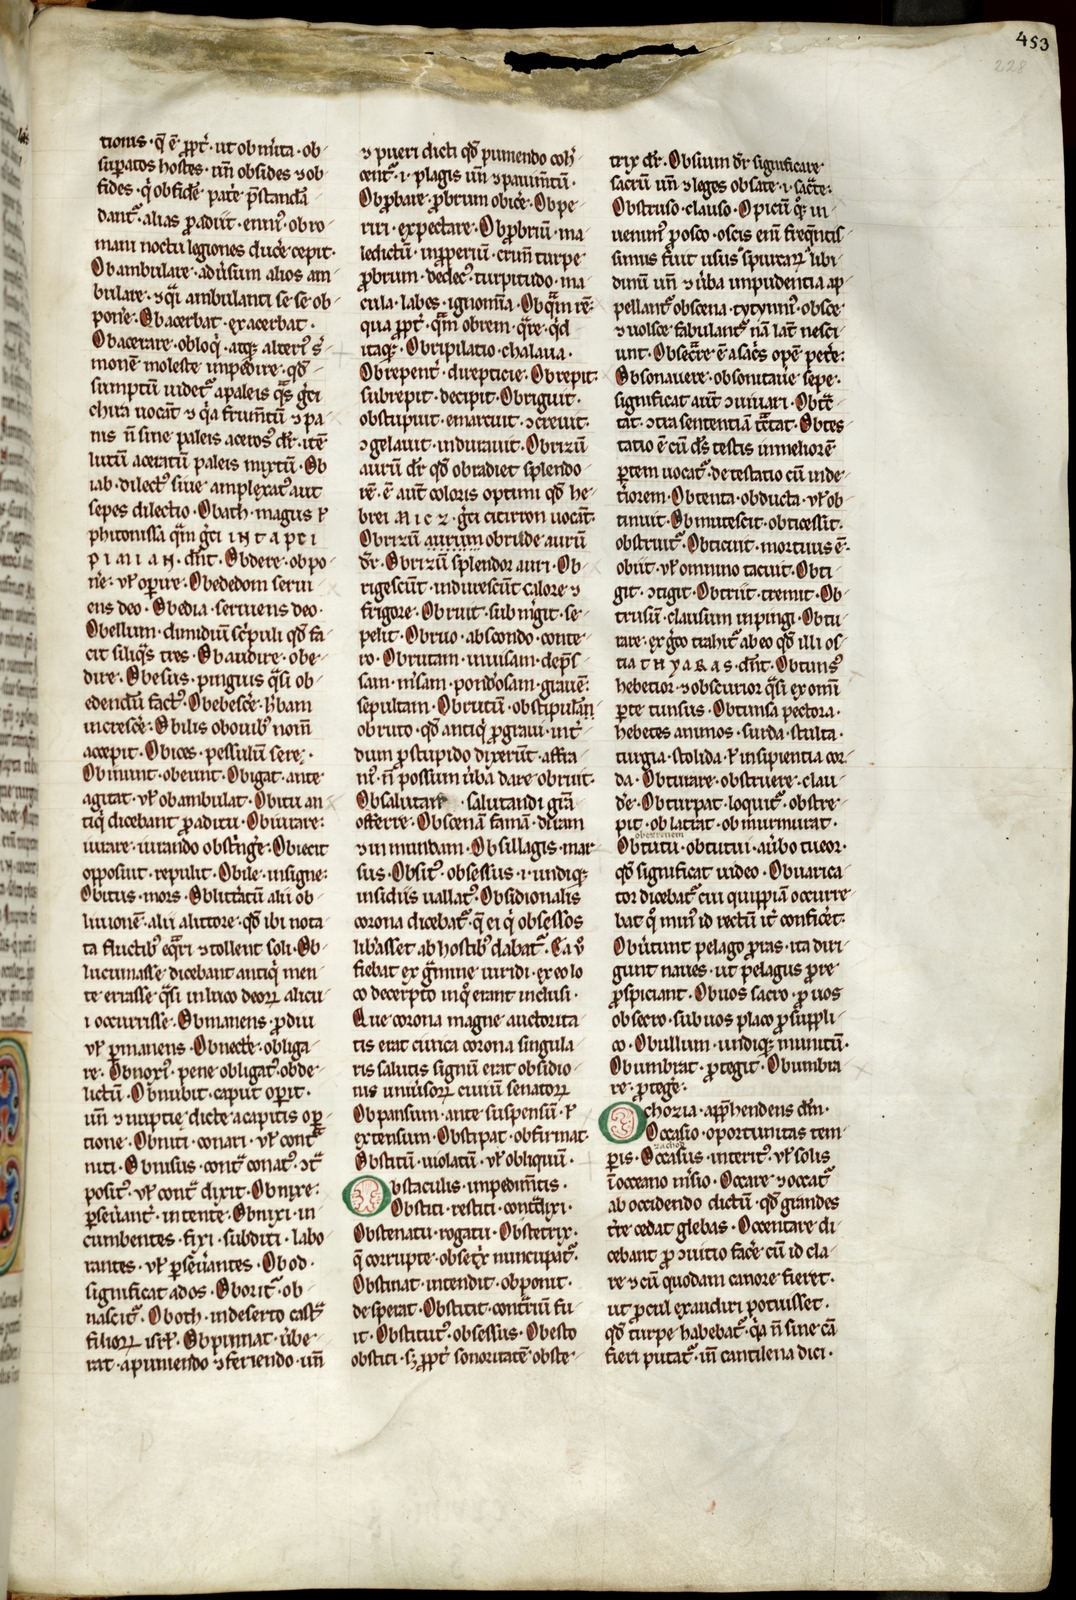 453
228
tionis· q̄ ē ꝓpt̄· ut ob mīta· ob
suꝑatos hostes· uñ obsides ⁊ ob
fides· q̇ obfidē patͤ p̄standā
dant᷑· alias ꝓadiit· enniꝰ· ob ro
mani noctu legiones ducēͤ cepit·
Obambulare· adūsum alios am
bulare· ⁊ q̄i ambulanti se se ob
ponͤe· Obacerbat· exacerbat·
Obacerare· obloq̇· atq; alteriꝰ ẜ
monē moleste impedire· qđ
sumptū uidet᷑ apaleis q̄s gͥci
chira uocāt ⁊ q̇a frumn̄tū ⁊ pa
nis ñ sine paleis acerosꝰ dr̄· itē
lutū aceritū paleis mixtū· Ob
iab· dilectꝰ siue amplexatꝰ aut
sepes dilectio· Obath· magus ł
phitonissa q̄m gͥci
dn̄t· Obdere· obpo
nͤe· uł opire· Obededom serui
ens deo· Obedia· seruiens deo·
Obellum· dimidiū sc̄puli qđ fa
cit siliq̄s tres· Obaudire· obe
dire· Obesus· pinguis q̄si ob
edendū factꝰ· Obebescͤe· h̄bam
increscͤe· Obilis obouibꝰ nom̄
accepit· Obices· pessulū sere·
Obinunt· obeunt· Obigat· ante
agitat· uł obambulat· Obitu an
tiq̇ dicebant ꝓaditu· Obiurare·
iurare· iurando obstͥngͤe· Obiecit
opposuit· repulit· Obile· insigne·
Obitus· mors· Oblitͤatū alii ob
liuionē· alii alittore· qđ ibi nota
ta fluctibꝰ eq̄ri ⁊ tollent soli· Ob
lucuniasse dicebant antiq̇ men
te errasse q̄si in luco deoꝝ alicu
i occurrissͤe· Obmanens· ꝓdiu
uł ꝑmanens· Obnectͤe· obliga
re· Obnoxiꝰ· pene obligatꝰ· obde
lictū· Obnubit· caput opͥt·
uñ ⁊ nuptie dicte acapitis opͤ
tione· Obniti· conari· uł contͣ
niti· Obnisus· contͣ conatꝰ· ꝯtͣ
positꝰ· uł contͣ dixit· Obnixe·
ꝑseūant᷑· intente· Obnixi· in
cumbentes· fixi· subditi· labo
rantes· uł ꝑseūantes· Obod·
significat ados· Oborit᷑· ob
nascit᷑· Oboth· indeserto castͣ
filioꝝ isrł· Obpiniat· ūbe
rat· apuniendo ⁊ feriendo· uñ
⁊ pueri dicti qđ puniendo coh̄
cent᷑· i· plagis uñ ⁊ pauim̄tū·
Obꝓbare· ꝓbrium obicͤe· Obpe
riri· expectare· Obꝓbriū· ma
ledictū· inꝓperiū· crim̄ turpe
ꝓbrium· dedecꝰ· turpitudo· ma
cula· labes· ignom̄ia· Obq̄m rē·
qua ꝓpt̄· q̄m obrem· q̄re· qͥd
itaq;· Obripilatio· chalaua·
Obrepent̄· direpticie· Obrepit·
subrepit· decipit· Obriguit·
obstupuit· emarcuit· ꝯcreuit·
ꝯgelauit· indurauit· Obrizū
aurū dr̄ qđ obradiet splendo
rē· ē aut̄ coloris optimi qđ he
brei gͥci citirron uocāt·
Obrizū aurum obrilde aurū
dr̄· Obrizū splendor auri· Ob
rigescūt· indurescūt calore ⁊
frigore· Obruit· submͥgit· se
pelit· Obruo· abscondo· conte
ro· Obrutam· inuisam· dep̄s
sam· mͥsam· pondͤosam· grauē·
sepultam· Obrutū· obstipulan
obruto· qđ antiq̇ ꝓgraui· int̄
dum ꝓstupido dixerūt· affra
niꝰ· ñ possum ūba dare obruit·
Obsalutare salutandi grā
offerre· Obscenā famā· diram
⁊ inmundam· Obsillagis· mar
sus· Obsitꝰ· obsessus· i· undiq;
insidiis uallatꝰ· Obsidionalis
corona dicebat᷑· q̄ ei q̇ obsessos
libͤasset ab hostibꝰ dabat᷑· Ea ꝟ
fiebat ex gͣmine uiridi· ex eo lo
co decerpto inq̇ erant inclusi·
Que corona magne auctorita
tis erat ciuica corona singula
ris salutis signū erat obsidio
nis uniūsoꝝ ciuiū senatoꝝ
Obpansum· ante suspensū ł
extensum· Obstipat· obfirmat·
Obstitū· uiolatū· uł obliquū·
Obstaculis· impedim̄tis·
Obstiti· restiti· contͣdixi·
Obstenatu· rogatu· Obstetrix·
q̄ corrupte· obsetͥx nuncupat᷑·
Obstinat· intendit· obponit·
desperat· Obstitit· contͣriū fu
it· Obstitutꝰ· obsessus· Obesto
obstiti· sꝫ ꝓpt̄ sonoritatē obste
trix dr̄· Obsium dr̄ significare
sacrū uñ ⁊ leges obsate· i· sacͣte·
Obstruso· clauso· Opicū q;· in
uenimꝰ ꝓ osco· oscis enī freq̄ntis
simus fuit usus spurcaꝝ libi
dinū uñ ⁊ ūba impudentia ap
pellant᷑ obscena· tytynniꝰ· obsce
⁊ uolsce fabulant᷑ nā lat̄ nesci
unt· Obsecͣre ē asacͥs opē petͤe·
Obsonauere· obsonitarie sepe·
significat aut̄ ꝯuiuari· Obtē
tat· ꝯtra sententiā tētat· Obtes
tatio ē cū d̄s testis inmeliorē
ꝑtem uocat᷑· detestatio cū inde
tͥiorem· Obtenta· obducta· uł ob
tinuit· Obmutescit· obticessit·
obstruit᷑· Obticuit· mortuus ē·
obiit· uł omnino tacuit· Obti
git· ꝯtigit· Obtriit· tremit· Ob
trusū· clausum inpingi· Obtu
rare· ex gͥco trahit᷑ abeo qđ illi os
tia dn̄t· Obtunsꝰ
hebetior· ⁊ obscurior q̄si ex omī
ꝑte tunsus· Obtunsa pectora·
hebetes animos· surda· stulta·
turgia· stolida· ł insipientia cor
da· Obturare· obstruere· clau
dͤe· Obturpat· loquit᷑· obstre
pit· oblatrat· obmurmurat·
Obtutu· obtutui· aūbo tueor·
qđ significat uideo· Obuarica
tor dicebat᷑ cui quippiā occurre
bat q̇ minꝰ id rectū it̄ conficͤet·
Obūtunt pelago ꝓras· ita diri
gunt naues· ut pelagus ꝓre
ꝓspiciant· Obuos sacro· ꝓuos
obsecro· sub uos placo ꝓsuppli
co· Obullum· undiq; munitū·
Obumbrat· ꝓtegit· Obumbra
re· ꝓtegͤe·
Ochozia· app̄hendens dm̄·
Occasio· oportunitas tem
ꝑis· Occasus· interitꝰ· uł solis
ī occeano mͥsio· Occare ⁊ occat᷑
ab occidendo dictū· qđ grandes
tͤre cedat glebas· Occentare di
cebant ꝓ ꝯuitio facͤe cū id cla
re ⁊ cū quodam canore fieret·
ut ꝓcul exaudiri potuisset·
qđ turpe habebat᷑· q̇a ñ sine cā
fieri putat᷑· iñ cantilena dici·